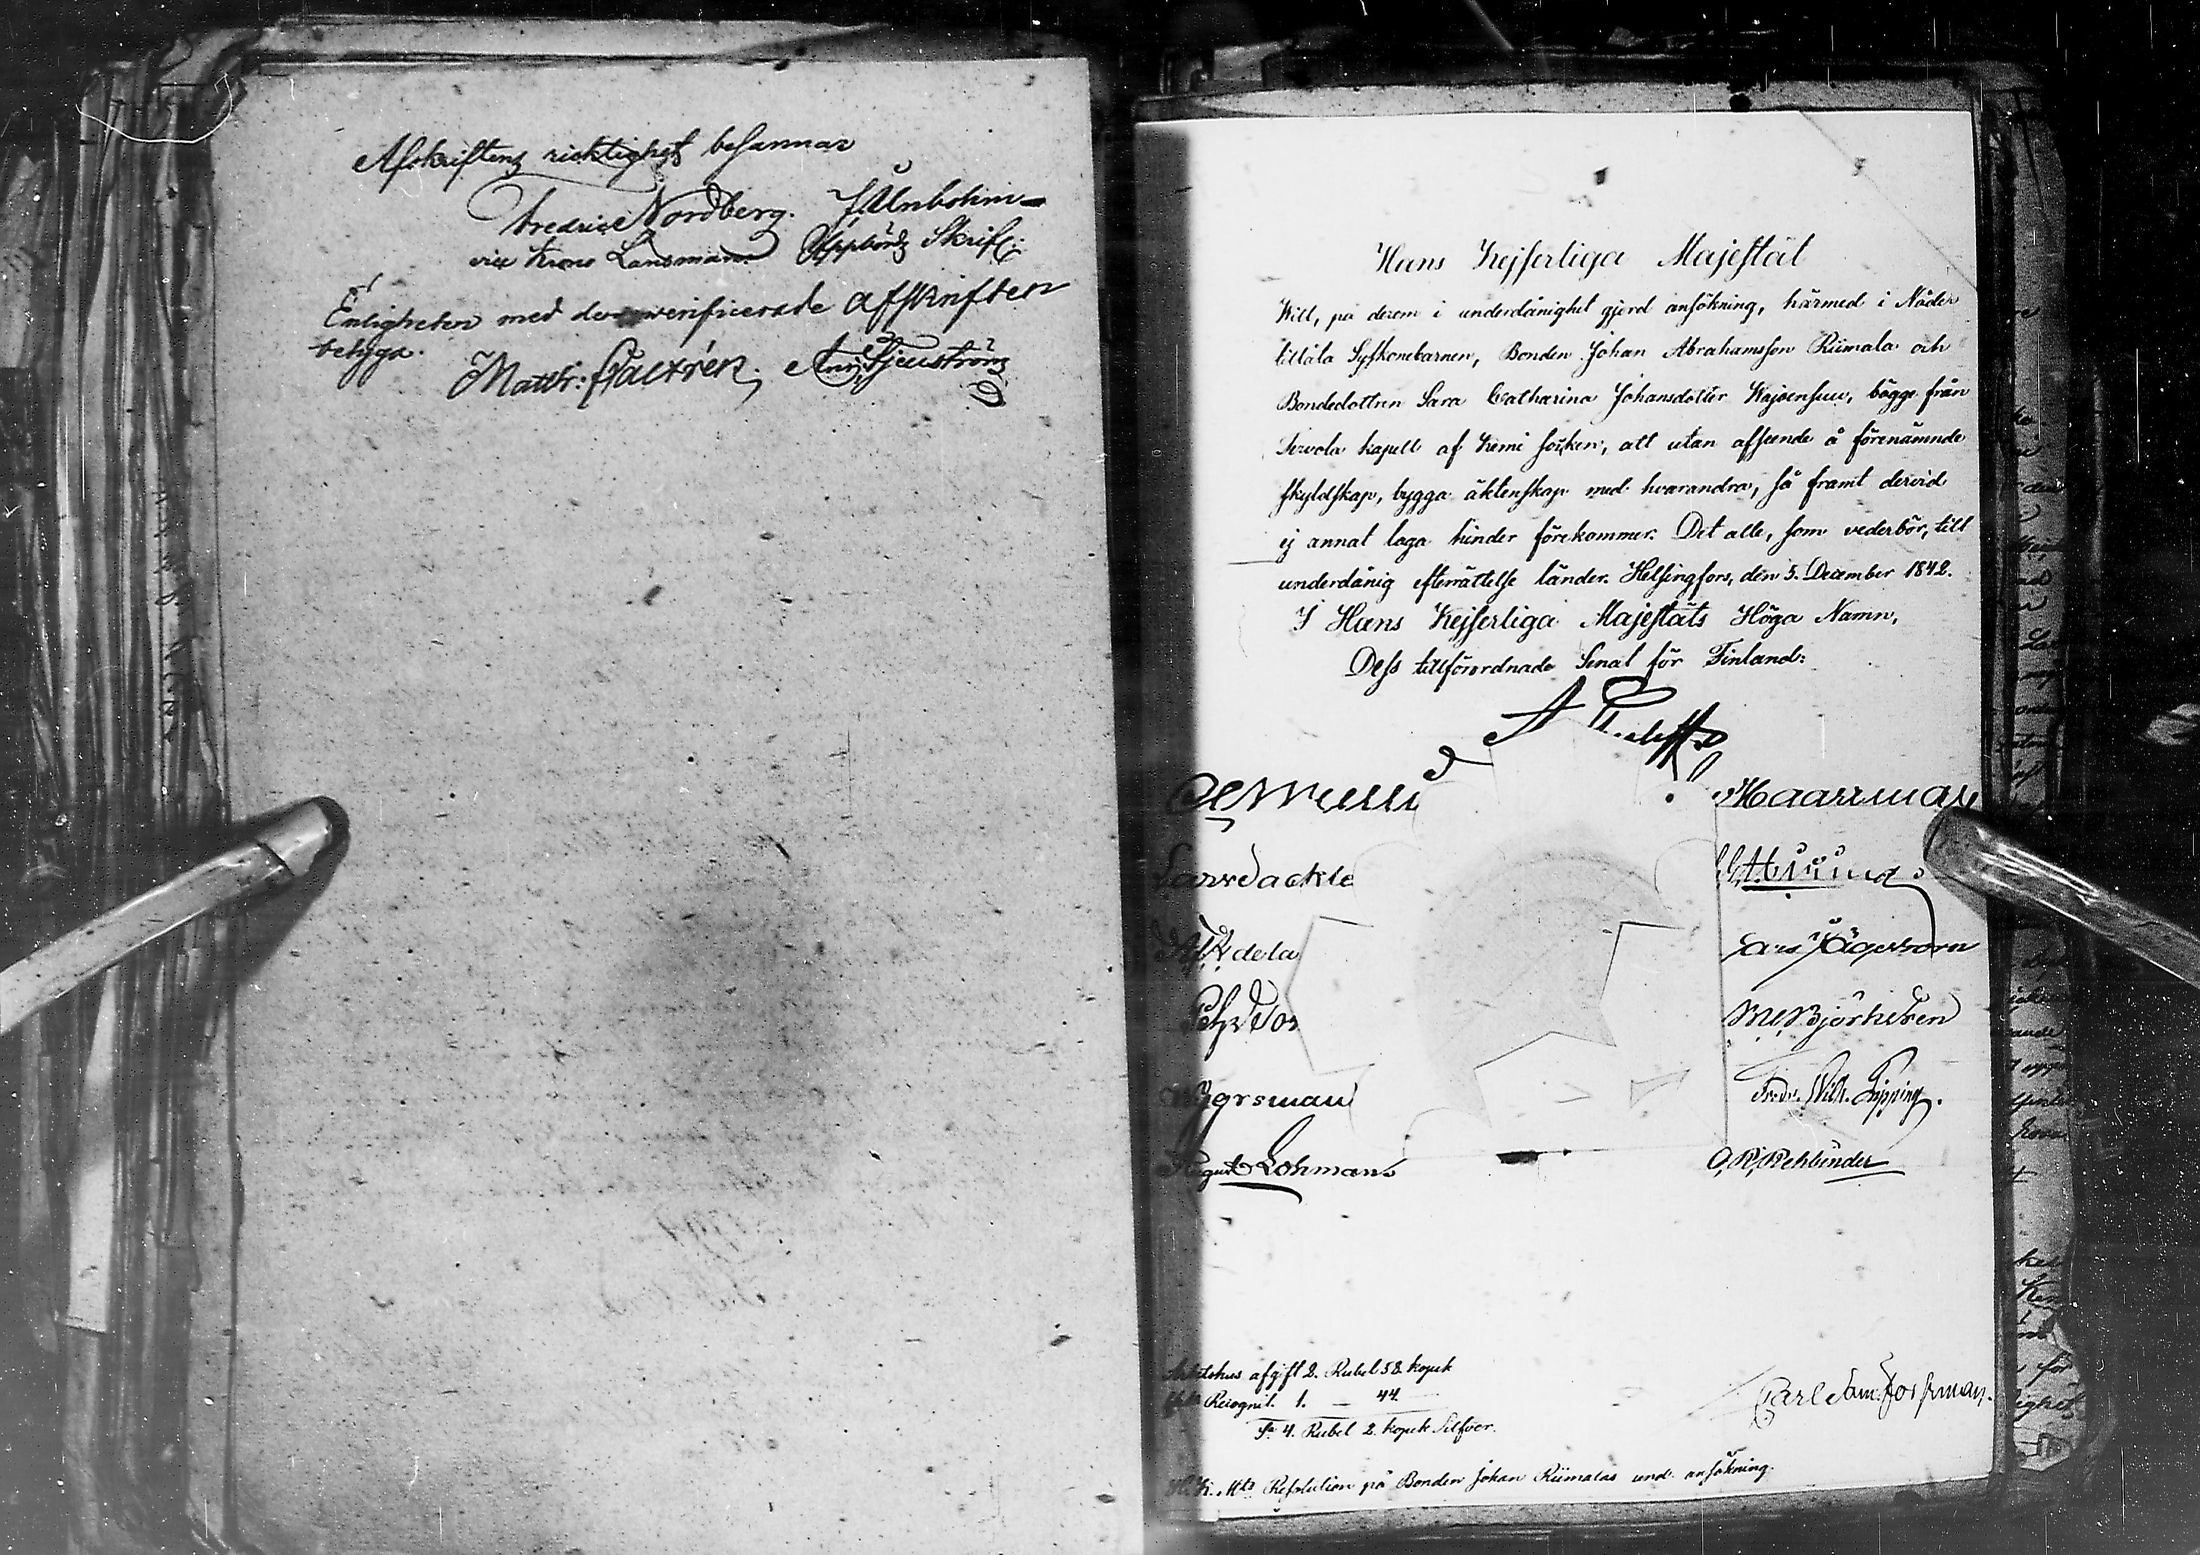 Afskriftens richtighet besannar
Fredric Nordberg. J. Ulnbohm
vice Krono Länsman Uppbörds Skrif:
Enligheten med den verificerade afskriften
betyga.
Matth: Castrén, And: Stjernström
Hans Kejserliga Majestät
Will, på derom i underdånighet gjord ansökning, härmed i Nåder
tillåta Syskonebarnen, Bonden Johan Abrahamsson Riimala och
Bondedottren Sara Catharina Johansdotter Kajoensuu, bägge från
Tervola kapell af Kemi socken, att utan afseende å förenämnde
skyldskap, bygga äktenskap med hvarandra, så framt dervid
ej annat laga hinder förekommer. Det alle, som vederbör, till
underdånig efterrättelse länder. Helsingfors, den 5. December 1842.
I Hans Kejserliga Majestäts Höga Namn,
Dess tillförordnade Senat för Finland:
Haarman
Lars Sackle
de la
Lars Jägerhorn
Björksten
Fredr. Wilh. Pipping.
August Lohman
O, R, Rehbinder
afgift 2. Rubel 58 kopek
Recognit. 1. — 44. —
Sa 4. Rubel 2. kopek Silfver.
Carl Sam. Forsman.
H. K. Mts Resolution på Bonden Johan Riimalas und. ansökning.